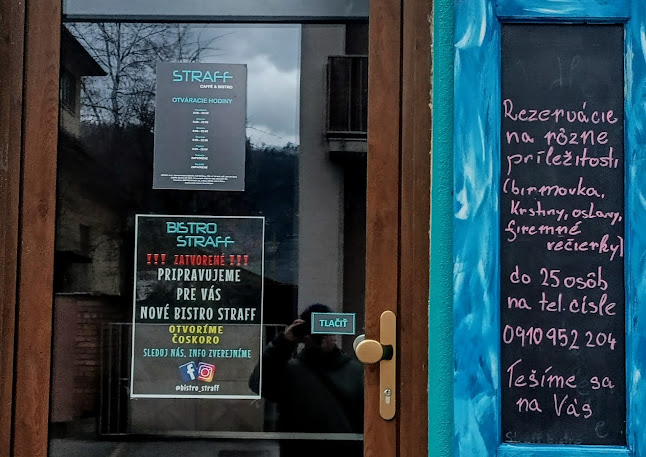 STRAFF
CAFFÉ & BISTRO
OTVÁRACIE HODINY
BISTRO
STRAFF
!!! ZATVORENÉ !!!
PRIPRAVUJEME
PRE VÁS
NOVÉ BISTRO STRAFF
OTVORÍME
ČOSKORO
SLEDUJ NÁS, INFO ZVEREJNÍME
@bistro_straff
TLAČIŤ
Rezervácie
na rôzne
príležitosti
(birmovka,
Krstiny, oslavy,
firemné
večierky)
do 25 osôb
na tel. čísle
0910 952 204
Tešíme sa
na Vás